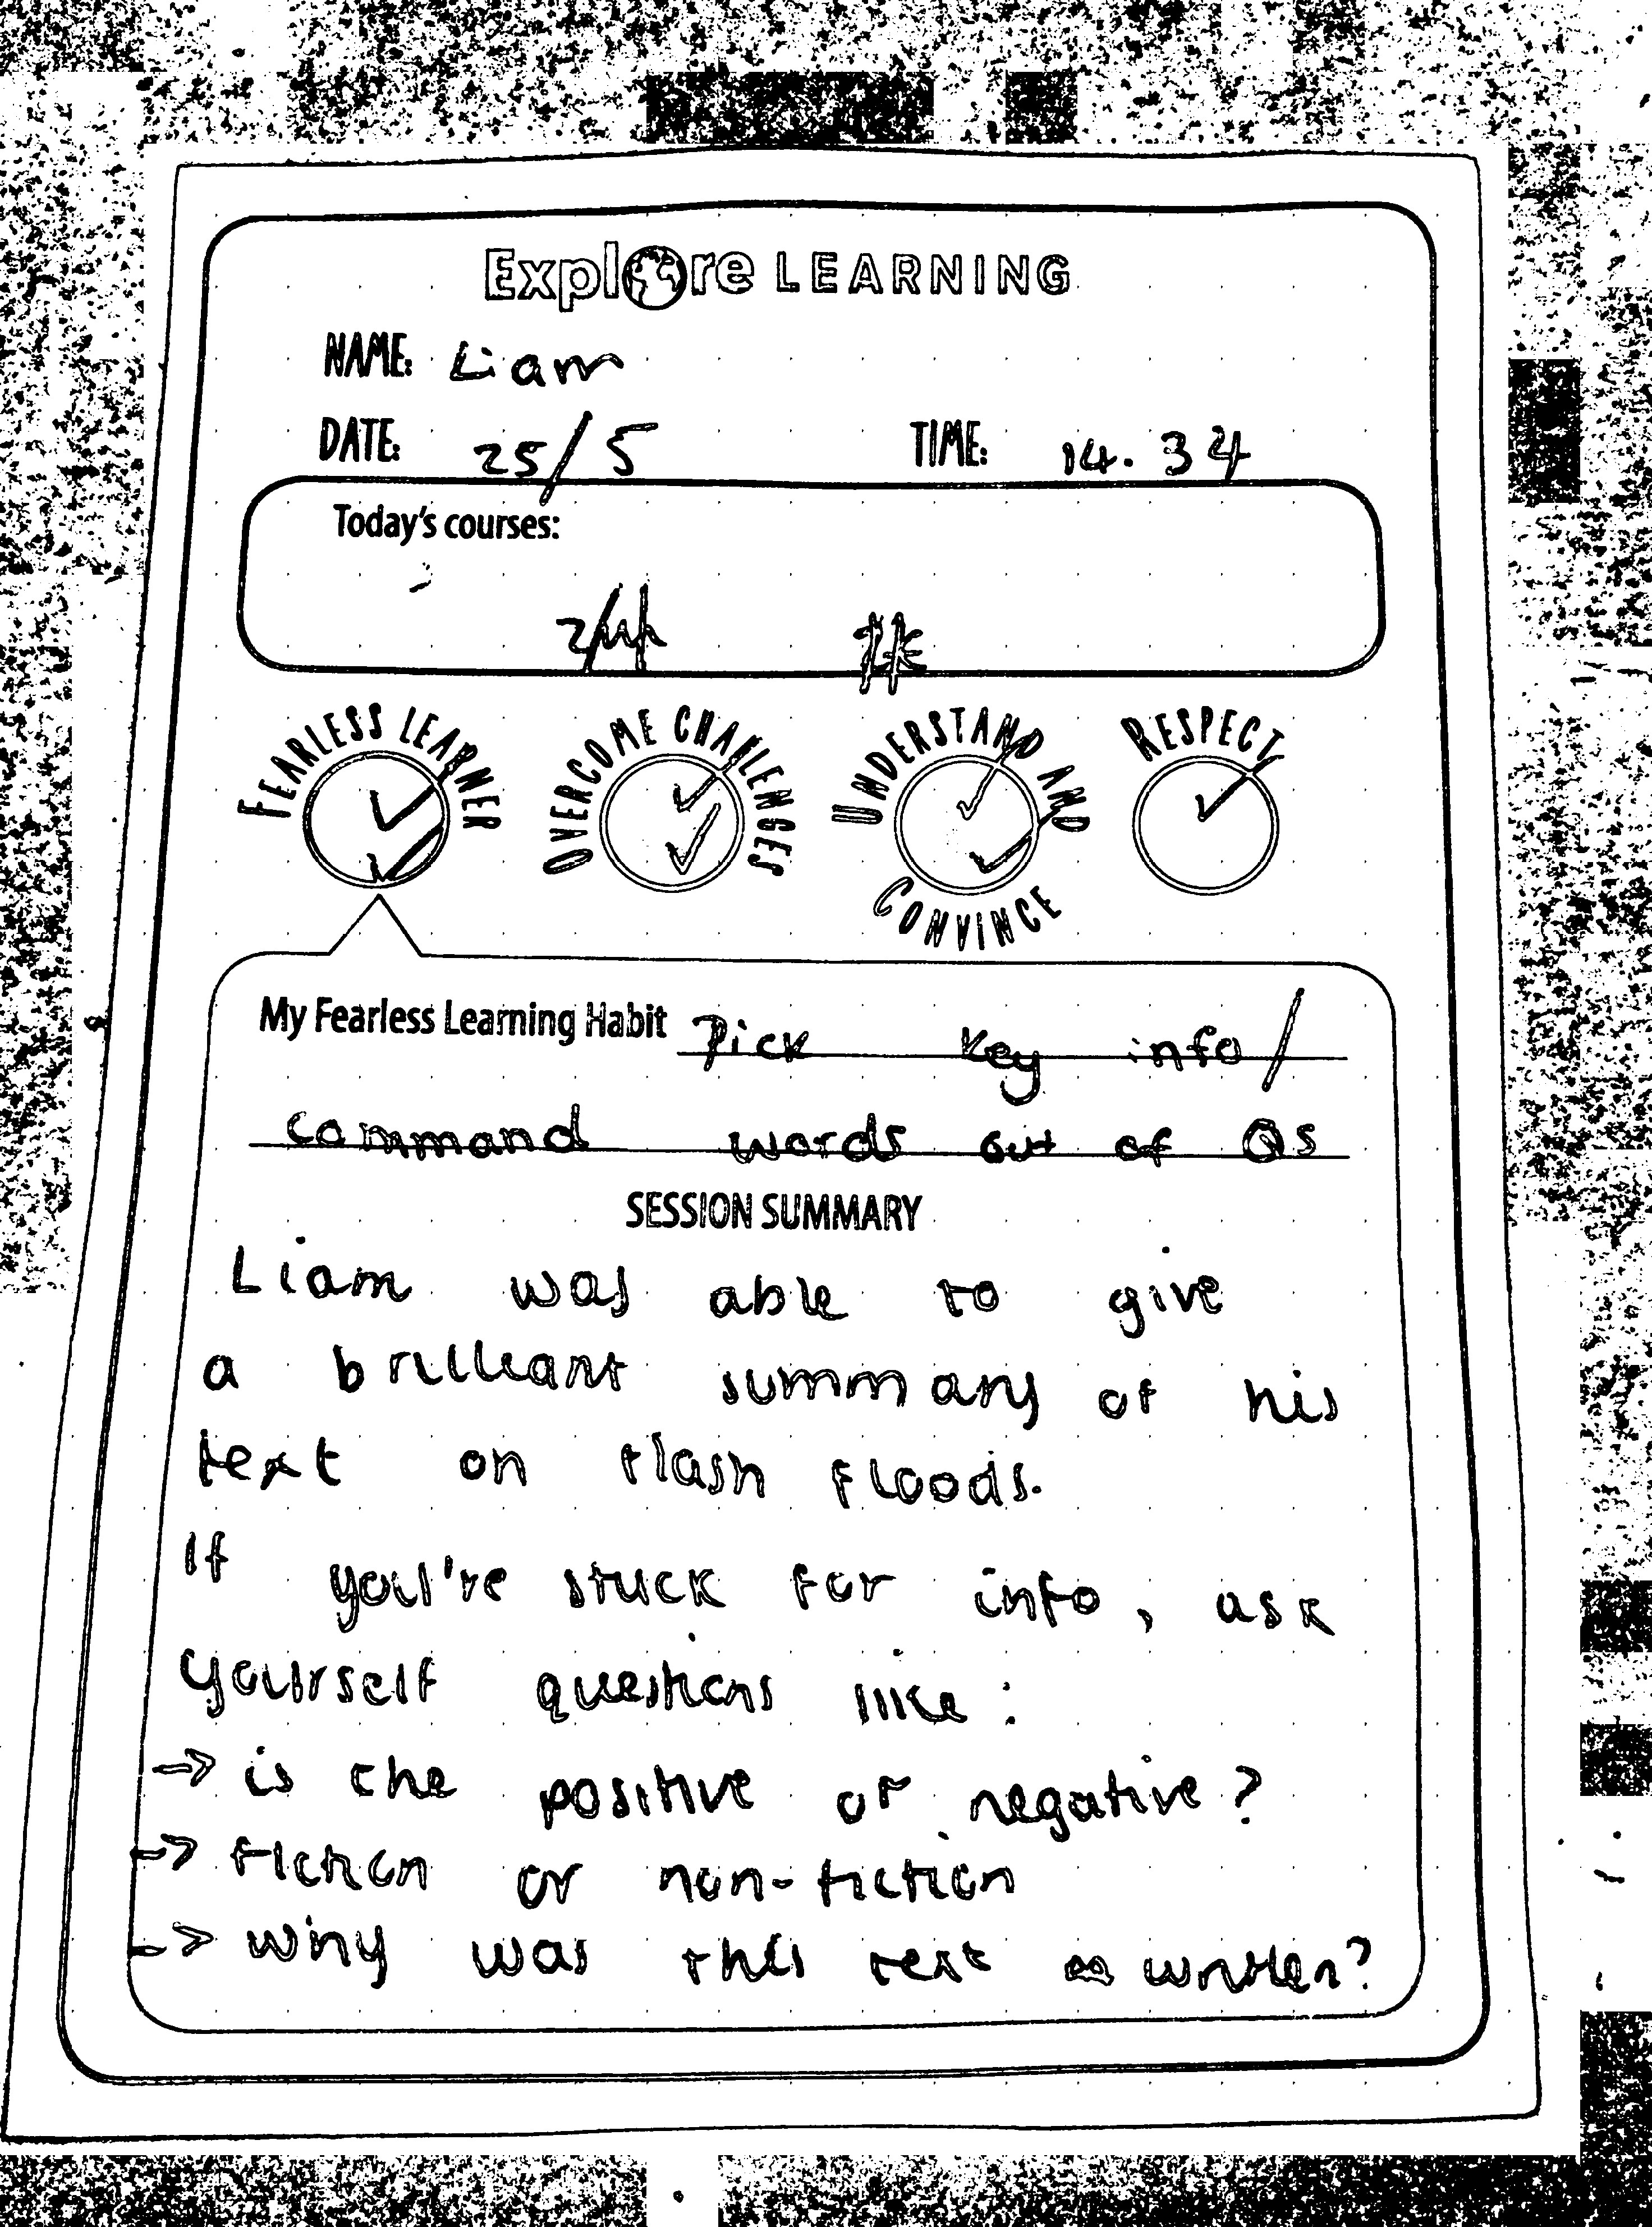 Explore LEARNING
NAME: Liam
DATE: 25/5 TIME: 14.34
Today's courses:
FEARLESS LEARNER OVERCOME CHALLENGES UNDERSTAND AND CONVINCE RESPECT
My Fearless Learning Habit Pick key info/
command words out of Qs
SESSION SUMMARY
Liam was able to give
a brilliant summary of his
text on flash floods.
If you're stuck for info, ask
yourself questions like:
→ is the positive or negative?
→ fiction or non-fiction
→ why was this text written?